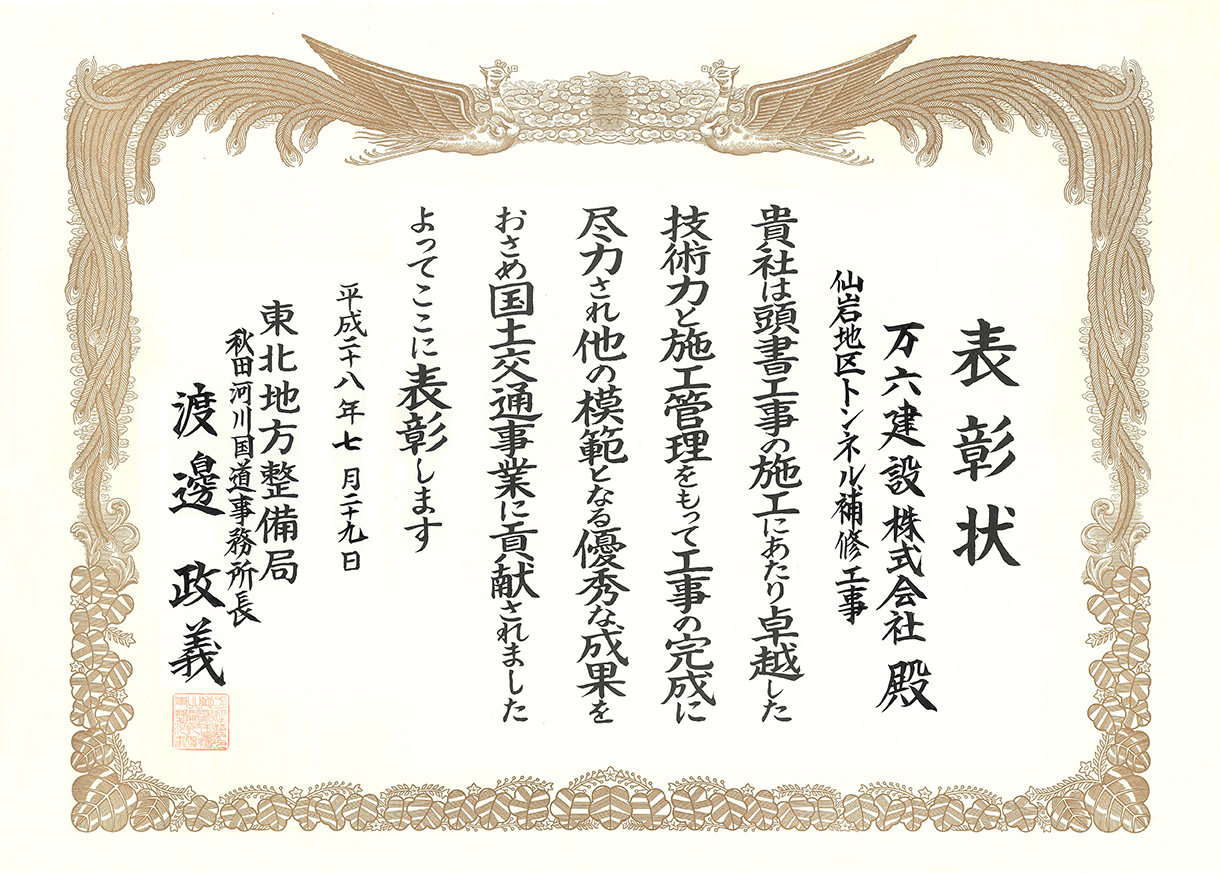 表彰状
万六建設株式会社 殿
仙岩地区トンネル補修工事
貴社は頭書工事の施工にあたり卓越した
技術力と施工管理をもって工事の完成に
尽力され他の模範となる優秀な成果を
おさめ国土交通事業に貢献されました
よってここに表彰します
平成二十八年七月二十九日
東北地方整備局
秋田河川国道事務所長
渡邊 政義